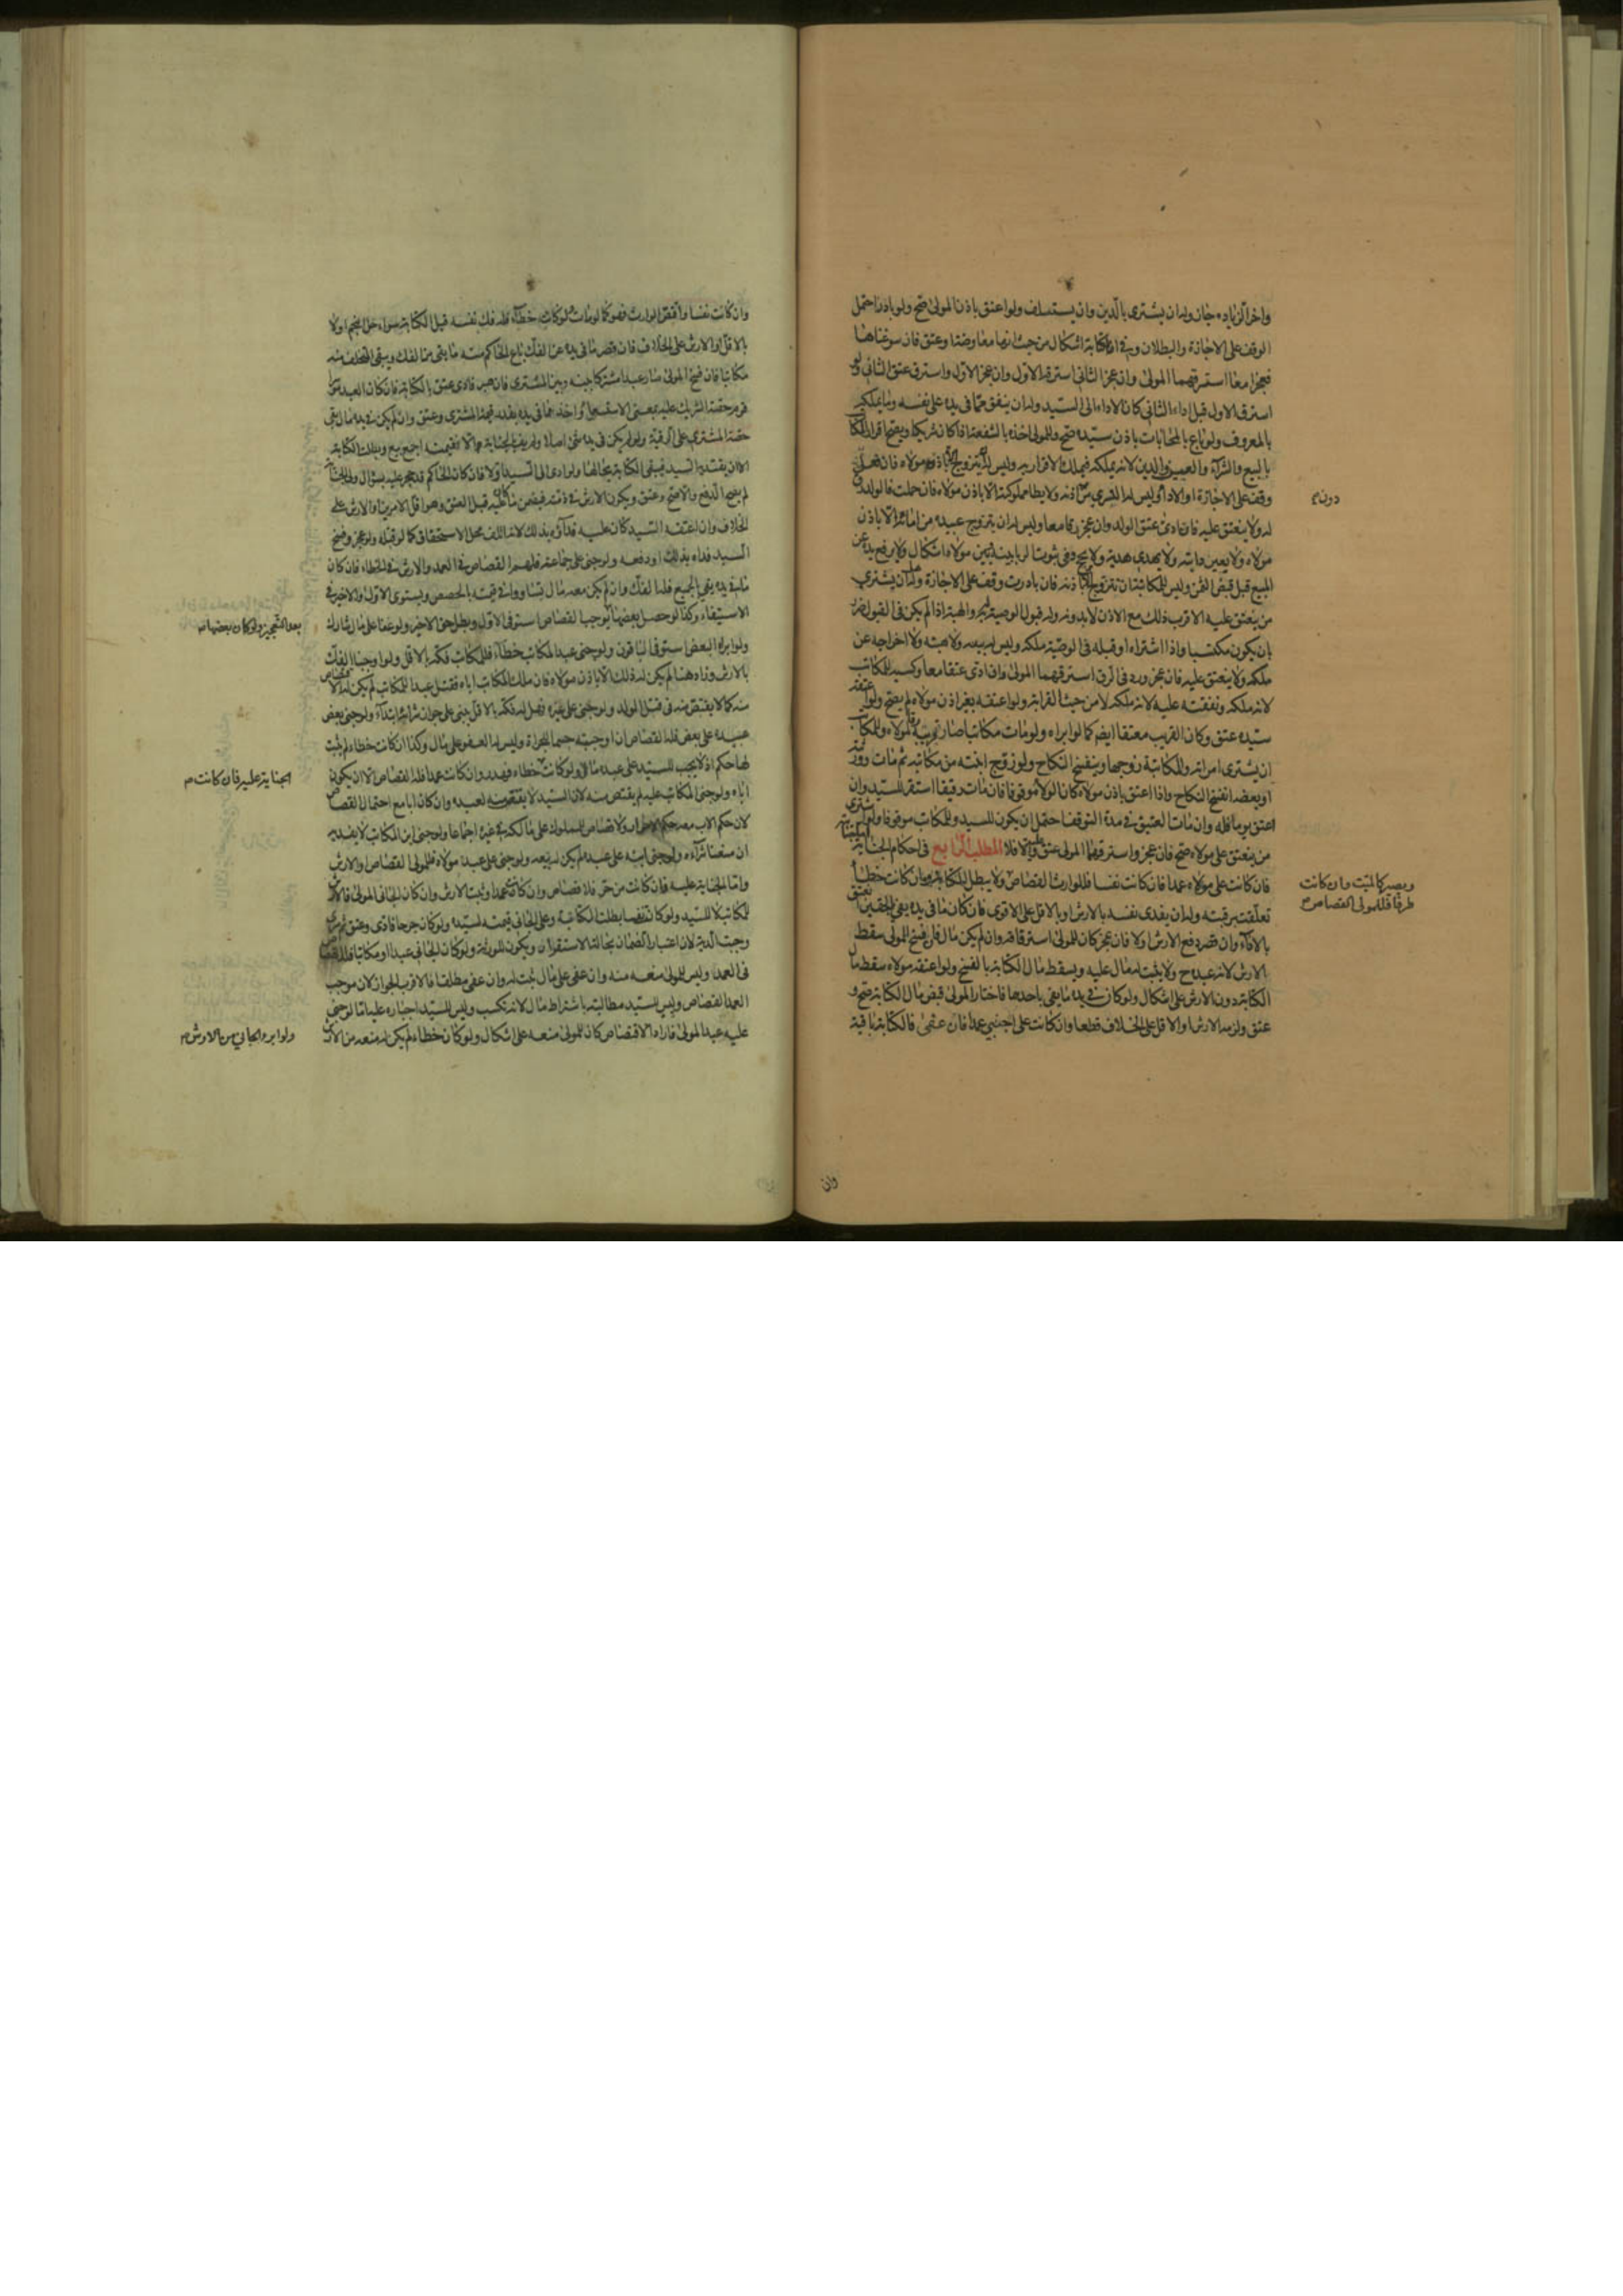 واخر الزيادة جاز وله ان يشترى بالدين وان يستسلف ولو اعتق باذن المولى صح ولو بادر احتمل
الوقف على الاجازة والبطلان وفى الكتابة اشكال من حيث انها معاوضة او عتق فان سوغناها
فعجزا معا استرقهما المولى وان عجز الثانى استرقه الاول وان عجز الاول واسترق عتق الثانى ولو
استرق الاول قبل اداء الثانى كان الاداء الى السيد وله ان ينفق مما فى يده على نفسه وما يملكه
بالمعروف ولو باع بالمحابات باذن سيده صح وللمولى اخذه بالشفعة اذا كان شريكا ويصح اقرار المكاتب
بالبيع والشراء والعيب والدين لانه يملكه فيملك الاقرار به وليس له ان يتزوج الا باذن مولاه فان فعل
وقف على الاجازة او الاداء وليس له التسرى من دون اذنه ولا يطا مملوكته الا باذن مولاه فان حملت فالولد رق
له ولا ينعتق عليه فان ادى عتق الولد وان عجز رقا معا وليس له ان يتزوج عبيده من امائه الا باذن
مولاه ولا يعير دابته ولا يهدى هدية ولا يحج وفى ثبوت الربا بينه وبين مولاه اشكال ولا يرفع يده عن
المبيع قبل قبض الثمن وليس للمكاتبة ان تتزوج الا باذنه فان بادرت وقف على الاجازة وله ان يشترى
من ينعتق عليه الاقرب ذلك مع الاذن لا بدونه وله قبول الوصية به والهبة اذا لم يكن فى القبول ضرر
بان يكون مكتسبا واذا اشتراه او قبله فى الوصية ملكه وليس له بيعه ولا هبته ولا اخراجه عن
ملكه ولا ينعتق عليه فان عجز ورد فى الرق استرقهما المولى وان ادى عتقا معا وكسبه للمكاتب
لانه ملكه ونفقته عليه لانه ملكه لا من حيث القرابة ولو اعتقه بغير اذن مولاه لم يصح ولو اعتقه
سيده عتق وكان القريب معتقا ايضا كما لو ابراه ولو مات مكاتبا صار قريبه رقا لمولاه وللمكاتب
ان يشترى امراته وللمكاتبة زوجها وينفسخ النكاح ولو زوج ابنته من مكاتبه ثم مات وورثته
او بعضه انفسخ النكاح واذا اعتق باذن مولاه كان الولاء موقوفا فان مات رقيقا استقر للسيد وان
اعتق يوما فله وان مات العتيق فى مدة التوقف احتمل ان يكون للسيد وللمكاتب موقوفا ولو اشترى
من ينعتق على مولاه صح فان عجز واسترقهما المولى عتق عليه والا فلا المطلب الرابع فى احكام الجناية
فان كانت على مولاه عمدا فان كانت نفسا فللوارث القصاص ولا يبطل الكتابة وان كانت خطأ
تعلقت برقبته وله ان يفدى نفسه بالارش او بالاقل على الاقوى فان كان ما فى يده يفى بالحقين عتق
بالاداء وان قصر دفع الارش اولا فان عجز كان للمولى استرقاقه وان لم يكن مال فان فسخ المولى سقط
الارش لانه عبده ح ولا يثبت له مال عليه ويسقط مال الكتابة بالفسخ ولو اعتقه مولاه سقط مال
الكتابة دون الارش على اشكال ولو كان فى يده ما يفى باحدهما فاختار المولى قبض مال الكتابة صح و
عتق ولزمه الارش او الاقل على الخلاف قطعا وان كانت على اجنبى عمدا فان عفى فالكتابة باقية
دونه
ويصير كالميت وان كانت
طرفا فللمولى القصاص
وان
وان كانت نفسا واقتص الوارث فهو كما لو مات ولو كانت خطأ فله فك نفسه قبل الكتابة سواء حل النجم او لا
بالاقل او الارش على الخلاف فان قصر ما فى يده عن الفك باع الحاكم منه ما يفى من الفك ويبقى المتخلف منه
مكاتبا فان فسخ المولى صار عبدا مشتركا بينه وبين المشترى فان صبر فادى عتق بالكتابة فان كان العبد
قوم حصة الشريك عليه بمعنى الاستسعاء واخذ مما فى يده بقدر قيمة المشترى وعتق وان لم يكن فى يده مال بقى
حصة المشترى على الرقية
الا ان يفتديه السيد فيبقى الكتابة بحالها ولو ادى الى السيد اولا فان كان الحاكم قد حجر عليه بسؤال ولى الجناية
لم يصح الدفع والا صح وعتق ويكون الارش فى ذمته فيضمن ما كان عليه قبل العتق وهو اقل الامرين او الارش على
الخلاف وان اعتقه السيد كان عليه فداؤه بذلك لانه اتلف محل الاستحقاق كما لو قتله ولو عجز وفسخ
السيد فداه بذلك او دفعه ولو جنى على جماعة فلهم القصاص فى العمد والارش فى الخطاء فان كان
ما فى يده يفى بالجميع فله الفك وان لم يكن معه مال تساووا فى قيمته بالحصص ويستوى الاول والاخير فى
الاستيفاء وكذا لو حصل بعضها ولو عفا على مال شارك
ولو ابراه البعض استوفى الباقون ولو جنى عبد المكاتب خطأ فللمكاتب فكه بالاقل ولو اوجبنا الفك
بالارش وزاد هنا لم يكن له ذلك الا باذن مولاه فان ملك المكاتب اباه فقتل عبدا للمكاتب لم يكن له القصاص
منه كما لا يقتص منه فى قتل الولد ولو جنى على غيره فهل له فكه بالاقل يبنى على جواز شرائه ابتداء ولو جنى بعض
عبيده على بعض فله القصاص ان اوجبته حسما للجراة وليس له العفو على مال وكذا ان كانت خطاء لم يثبت
لها حكم اذ لا يجب للسيد على عبده مال ولو كانت خطاء فهدر وان كانت عمدا فله القصاص الا ان يكون
اباه ولو جنى المكاتب عليه لم يقتص منه لان السيد لا يقتص منه لعبده وان كان ابا مع احتمال القصاص
لان حكم الاب معه حكم الاحرار ولا قصاص للمملوك على مالكه فى غيره اجماعا ولو جنى ابن المكاتب لا يفديه
ان منعنا شراءه ولو جنى ابنه على عبده لم يكن له بيعه ولو جنى على عبد مولاه فللمولى القصاص والارش
واما الجناية عليه فان كانت من حر فلا قصاص وان كانت عمدا وثبت الارش وان كان الجانى المولى فالارش
للمكاتب لا للسيد ولو كانت نفسا بطلت الكتابة وعلى الجانى قيمته لسيده ولو كان جرحا فادى وعتق ثم سرى
وجبت الدية لان اعتبار الضمان بحالة الاستقرار ويكون للورثة ولو كان الجانى عبدا او مكاتبا فله القصاص
فى العمد وليس للمولى منعه منه وان عفى على مال ثبت له وان عفى مطلقا فالاقرب الجواز لان موجب
العمد القصاص وليس للسيد مطالبته باشتراط مال لانه تكسب وليس للسيد اجباره عليه اما لو جنى
عليه عبد المولى فاراد الاقتصاص كان للمولى منعه على اشكال ولو كان خطاء لم يكن له منعه من الارش
بعد التعجيز ولو كان بعضها
الجناية عليه فان كانت
ولو ابرء الجانى من الارش